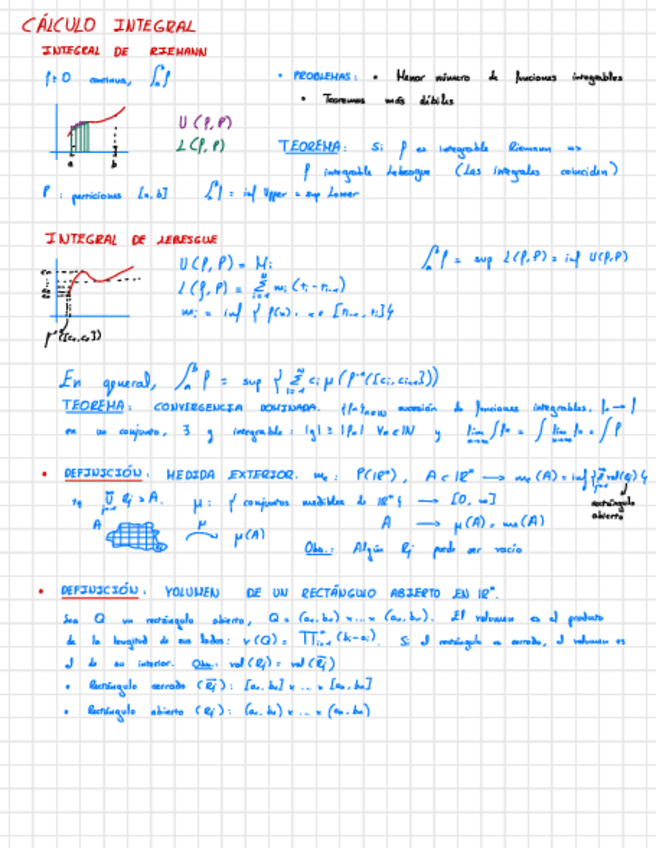 CÁLCULO INTEGRAL
INTEGRAL DE RIEMANN
f≥0 continua, ∫ₐᵇf
• PROBLEMAS: • Menor número de funciones integrables
• Teoremas más débiles
U(f,P)
L(f,P)
a b
TEOREMA: Si f es integrable Riemann =>
f integrable Lebesgue (Las integrales coinciden)
P: particiones [a,b] ∫ₐᵇf = inf Upper = sup Lower
INTEGRAL DE LEBESGUE
U(f,P) = Mi
L(f,P) = Σ mi (ti-ti-1)
mi = inf { f(x),
∫ₐᵇf = sup L(f,P) = inf U(f,P)
f⁻¹([c1,c2])
En general, ∫ₐᵇ f = sup { Σ ci μ(f⁻¹([ci,ci+1]))
TEOREMA: CONVERGENCIA DOMINADA. {fn}n∈IN sucesión de funciones integrables, fn → f
en un conjunto, ∃ g integrable: |g| ≥ |fn| ∀n∈IN y lim ∫fn = ∫ lim fn = ∫f
• DEFINICIÓN: MEDIDA EXTERIOR. me: P(IRⁿ), A⊂IRⁿ → me(A) = inf{Σ vol(Rj)}
rectángulo
abierto
tq ∪ Rj ⊃ A. μ: { conjuntos medibles de IRⁿ} → [0,∞]
A → μ(A) = me(A)
A μ μ(A)
Obs.: Algún Rj puede ser vacío
• DEFINICIÓN: VOLUMEN DE UN RECTÁNGULO ABIERTO EN IRⁿ.
Sea Q un rectángulo abierto, Q = (a1,b1)x...x(an,bn). El volumen es el producto
de la longitud de sus lados: v(Q) = ∏ (bi-ai). Si el rectángulo es cerrado, el volumen es
el de su interior. Obs: vol(Rj) = vol(R̄j)
• Rectángulo cerrado (R̄j): [a1,b1] x ... x [an,bn]
• Rectángulo abierto (Rj): (a1,b1) x ... x (an,bn)